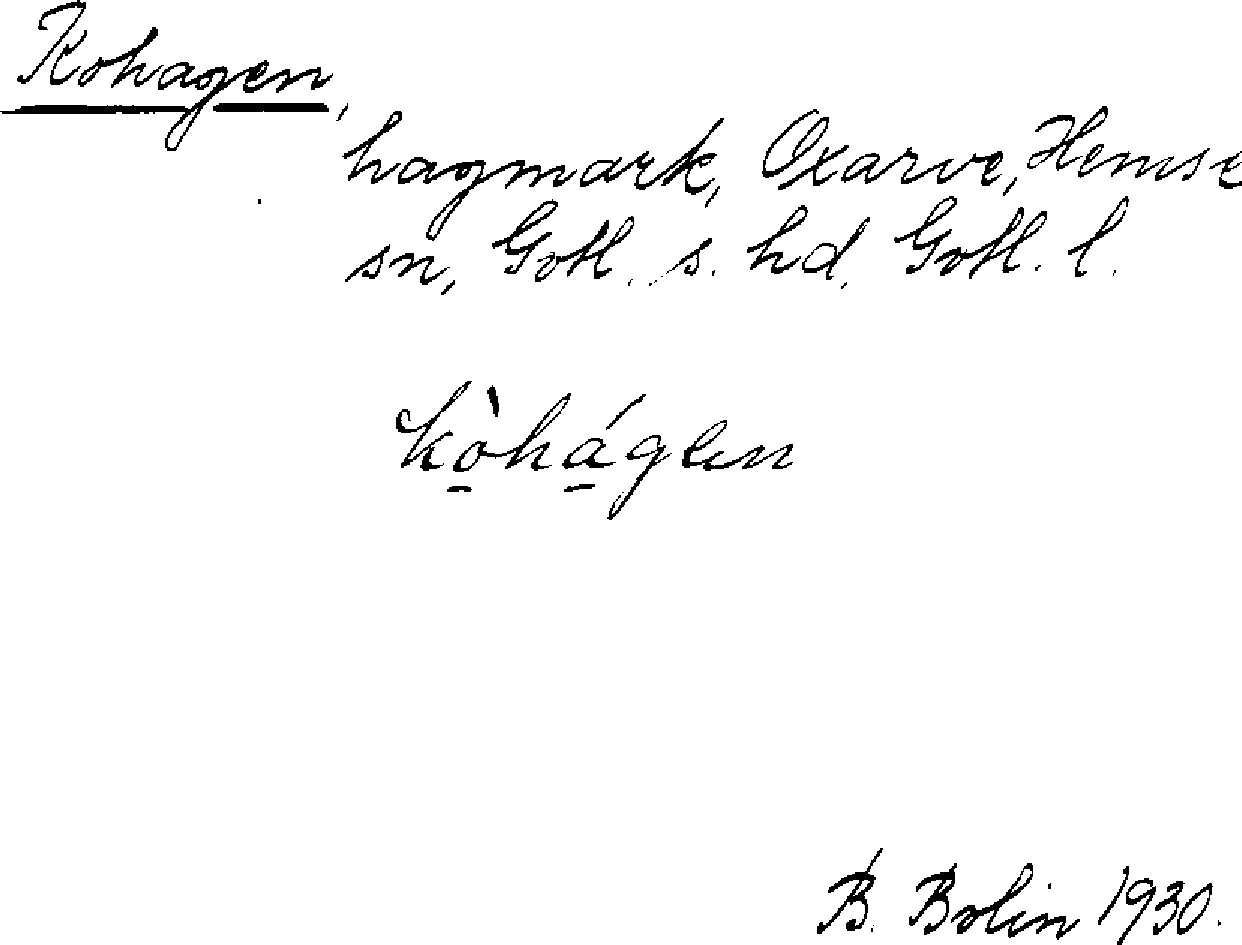 Kohagen,
hagmark, Oxarve, Hemse
sn, Gotl. s. hd, Gotl. l.
kò̱há̱gen
B. Bolin 1930.